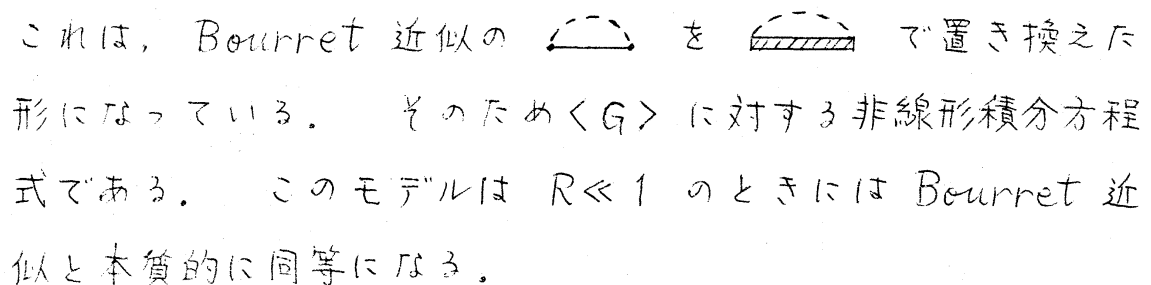 これは, Bourret 近似の を で置き換えた
形になっている. そのため<G> に対する非線形積分方程
式である. このモデルは R≪1 のときには Bourret 近
似と本質的に同等になる.